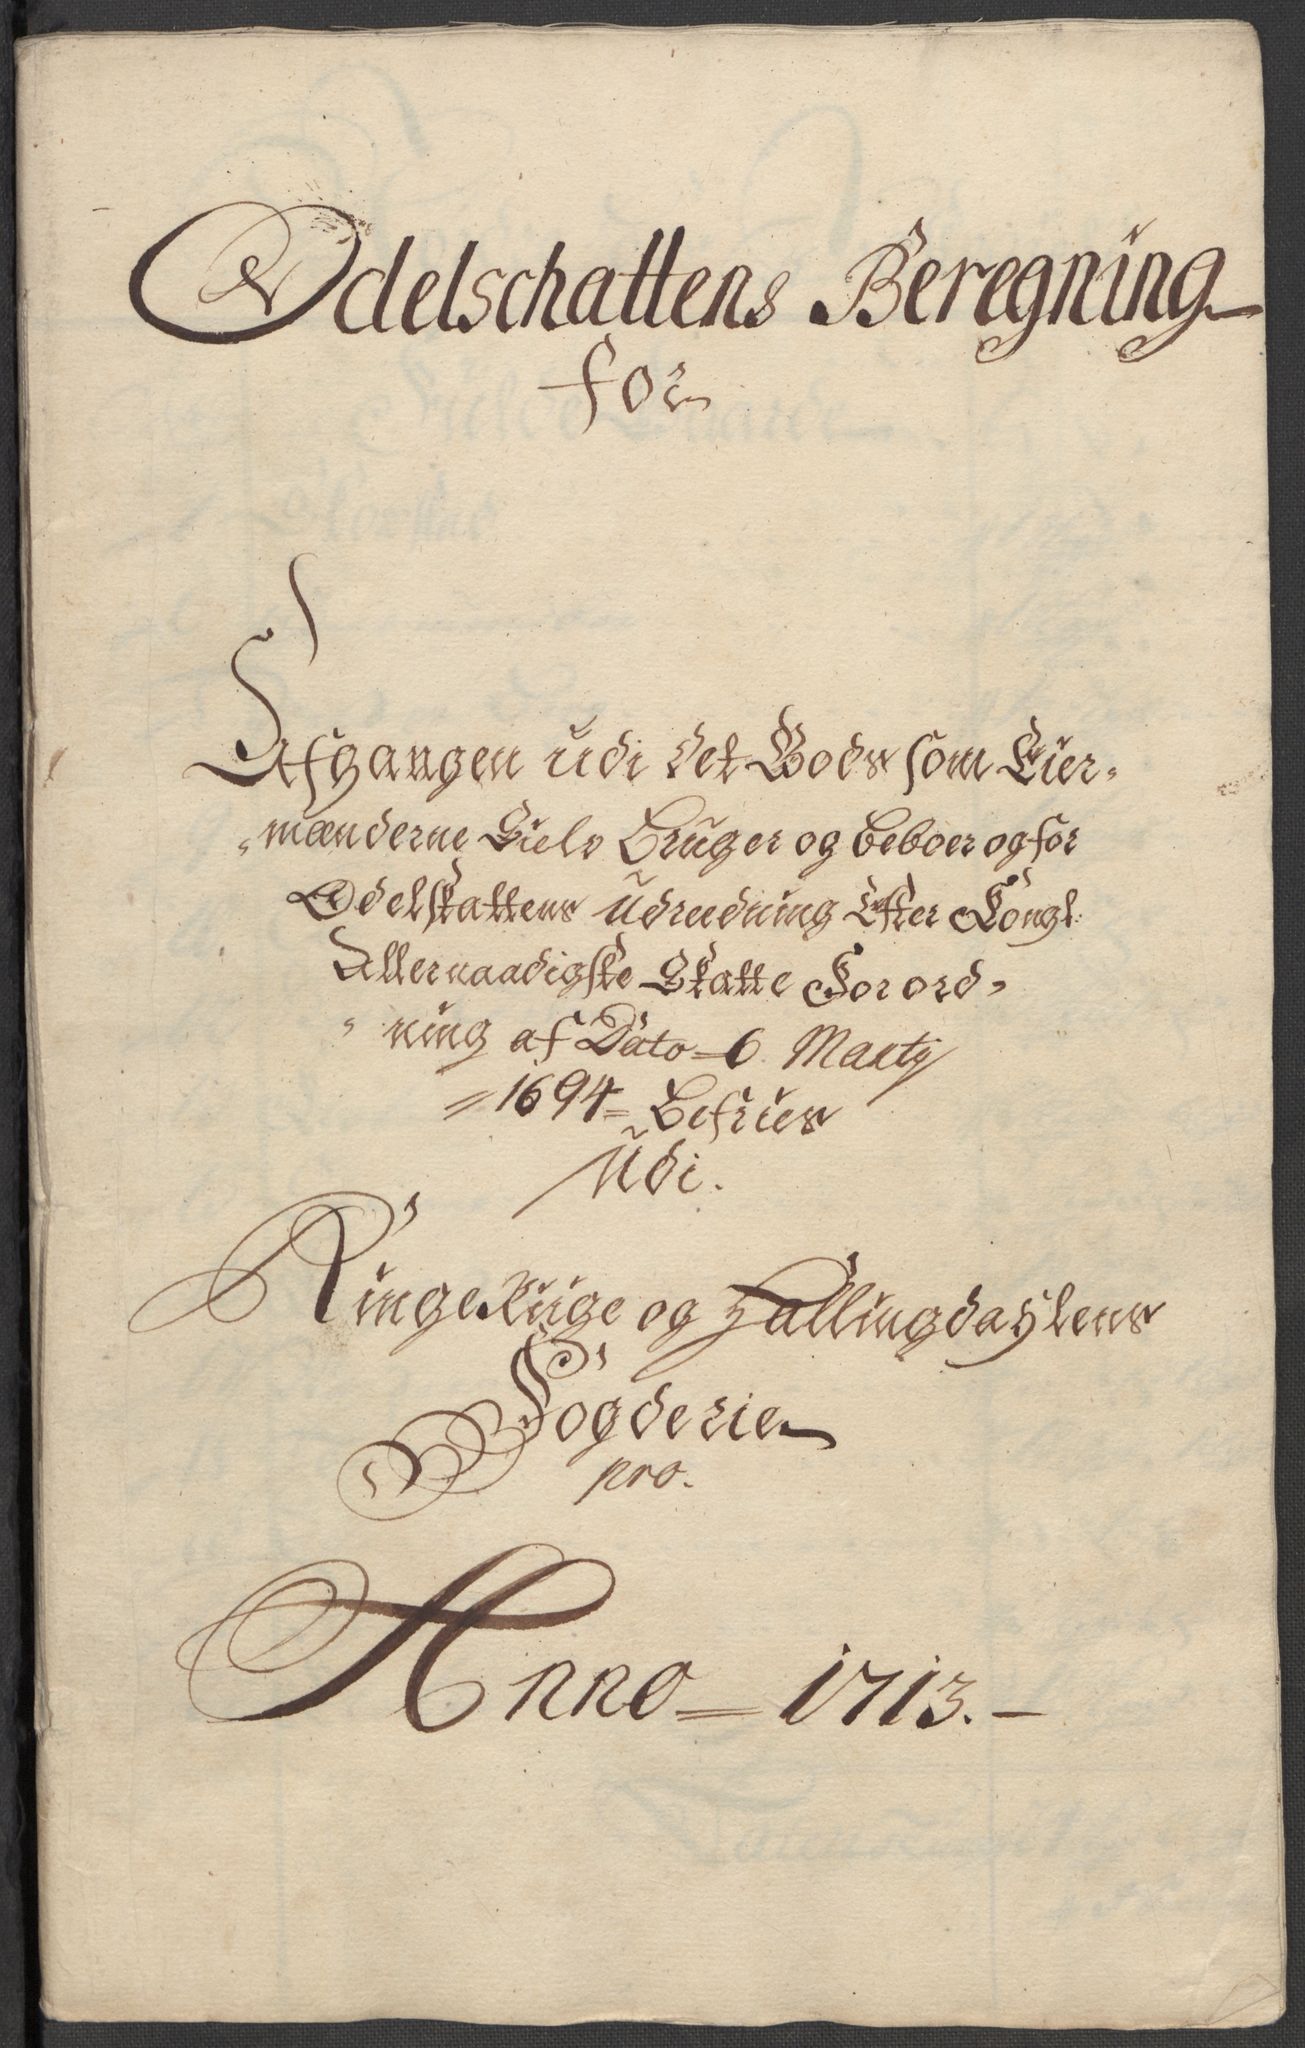 Odelschattens Beregning
for
Afgangen udi det Gods som Eier-
mænderne Sielv Bruger og beboer og for
Odelskattens udredning Efter Kongl:
Allernaadigste Skatte Forord-
ning af Dato 6 Marty
1694 = Befries
Udi.
Ringerige og Hallingdahlens
Fogderie
pro.
Anno = 1713. -